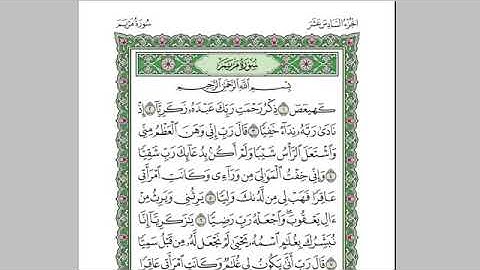 سُورَةُ مَرْيَمَ
الجُزْءُ السَّادِسَ عَشَرَ
سُورَةُ مَرْيَمَ
بِسْمِ اللَّهِ الرَّحْمَٰنِ الرَّحِيمِ
كٓهيعٓصٓ ١ ذِكْرُ رَحْمَتِ رَبِّكَ عَبْدَهُۥ زَكَرِيَّآ ٢ إِذْ
نَادَىٰ رَبَّهُۥ نِدَآءً خَفِيًّا ٣ قَالَ رَبِّ إِنِّي وَهَنَ ٱلْعَظْمُ مِنِّي
وَٱشْتَعَلَ ٱلرَّأْسُ شَيْبًا وَلَمْ أَكُنۢ بِدُعَآئِكَ رَبِّ شَقِيًّا
٤ وَإِنِّي خِفْتُ ٱلْمَوَٰلِيَ مِن وَرَآءِي وَكَانَتِ ٱمْرَأَتِي
عَاقِرًا فَهَبْ لِي مِن لَّدُنكَ وَلِيًّا ٥ يَرِثُنِي وَيَرِثُ مِنْ
ءَالِ يَعْقُوبَ وَٱجْعَلْهُ رَبِّ رَضِيًّا ٦ يَٰزَكَرِيَّآ إِنَّا
نُبَشِّرُكَ بِغُلَٰمٍ ٱسْمُهُۥ يَحْيَىٰ لَمْ نَجْعَل لَّهُۥ مِن قَبْلُ سَمِيًّا
٧ قَالَ رَبِّ أَنَّىٰ يَكُونُ لِي غُلَٰمٌ وَكَانَتِ ٱمْرَأَتِي عَاقِرًا